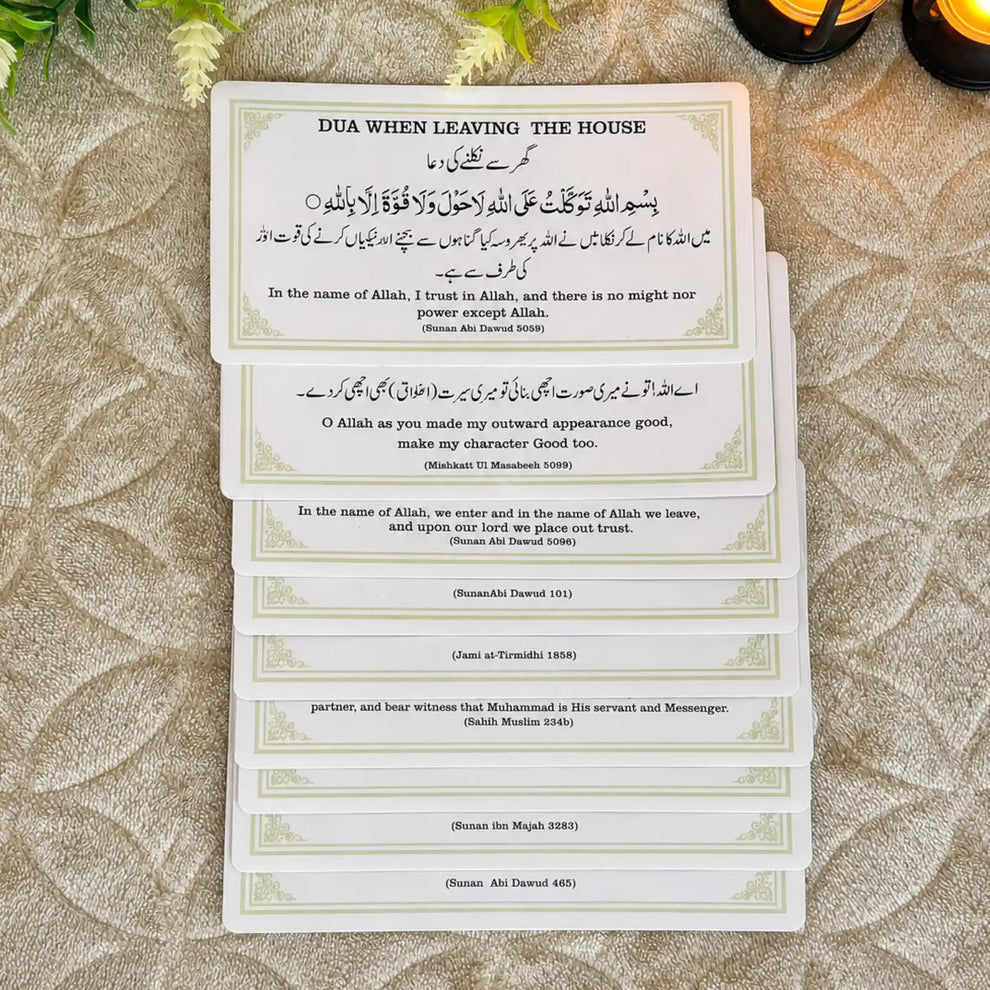 DUA WHEN LEAVING THE HOUSE
گھر سے نکلنے کی دعا
بِسْمِ اللّٰهِ تَوَكَّلْتُ عَلَى اللّٰهِ لَا حَوْلَ وَلَا قُوَّةَ اِلَّا بِاللّٰهِ ○
میں اللہ کا نام لے کر نکلا میں نے اللہ پر بھروسہ کیا گناہوں سے بچنے اور نیکیاں کرنے کی قوت اللہ
کی طرف سے ہے۔
In the name of Allah, I trust in Allah, and there is no might nor
power except Allah.
(Sunan Abi Dawud 5059)
اے اللہ! تو نے میری صورت اچھی بنائی تو میری سیرت (اخلاق) بھی اچھی کردے۔
O Allah as you made my outward appearance good,
make my character Good too.
(Mishkatt Ul Masabeeh 5099)
In the name of Allah, we enter and in the name of Allah we leave,
and upon our lord we place out trust.
(Sunan Abi Dawud 5096)
(SunanAbi Dawud 101)
(Jami at-Tirmidhi 1858)
partner, and bear witness that Muhammad is His servant and Messenger.
(Sahih Muslim 234b)
(Sunan ibn Majah 3283)
(Sunan Abi Dawud 465)